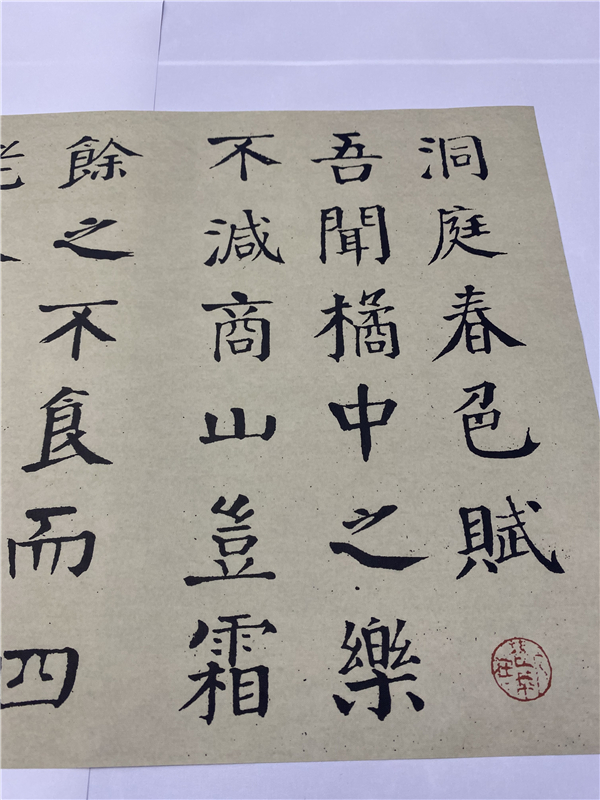 洞庭春色賦
吾聞橘中之樂
不減商山豈霜
餘之不食而四
老人